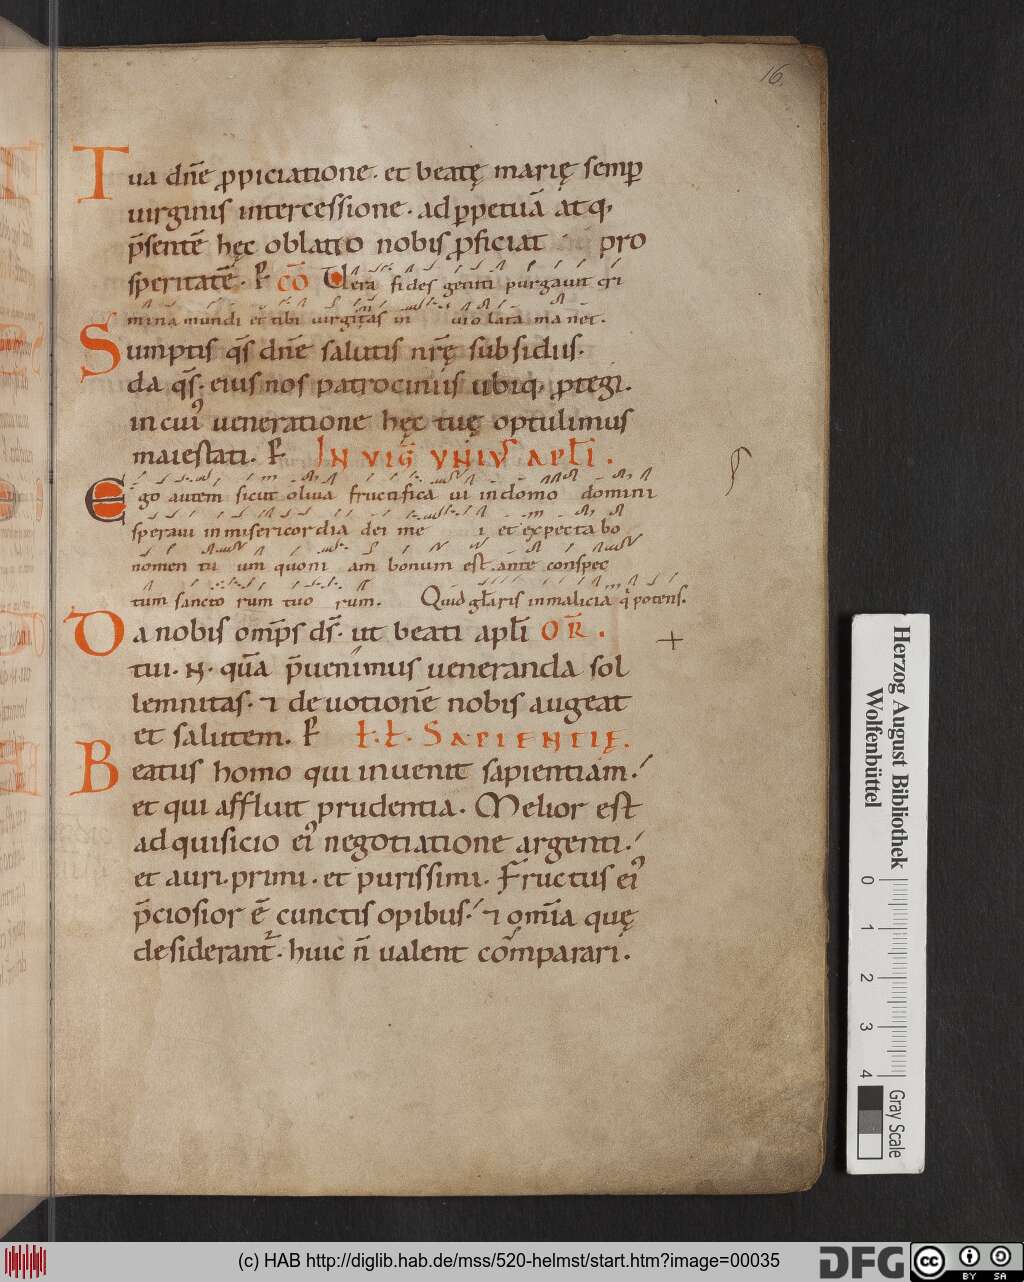 16
Tua dn̄e ꝓpiciatione. et beatę marię semꝑ
uirginis intercessione. ad ꝑpetuā atq;
p̄sentē hęc oblatio nobis ꝓficiat pro
speritatē. P̄ CŌ Uera fides geniti purgauit cri
mina mundi et tibi uirginitas in uiolata manet.
Sumptis qs̄ dn̄e salutis nr̄ę subsidiis.
da qs̄. eius nos patrociniis ubiq; ꝓtegi.
in cui᾽ ueneratione hęc tuę optulimus
maiestati. P̄ IN VIG̅ VNIVS APL̄I.
Ego autem sicut oliua fructifica ui in domo domini
speraui in misericordia dei me i et expecta bo
nomen tu um quoni am bonum est. ante conspec
tum sancto rum tuo rum. Quid gl̄aris in malicia q̇ potens.
Da nobis omp̄s ds̄. ut beati apl̄i OR̄.
tui. N. quā p̄uenimus ueneranda sol
lemnitas. ⁊ deuotionē nobis augeat
et salutem. P̄ ł. ł. SAPIENTIĘ.
Beatus homo qui inuenit sapientiam.
et qui affluit prudentia. Melior est
adquisicio ei᾽ negotiatione argenti.
et auri primi. et purissimi. Fructus ei᾽
p̄ciosior ē cunctis opibus. ⁊ om̄ia quę
desiderant᷑. huic n̄ ualent cōmparari.
Herzog August Bibliothek
Wolfenbüttel
0 1 2 3 4
Gray Scale
(c) HAB http://diglib.hab.de/mss/520-helmst/start.htm?image=00035
DFG
cc BY SA